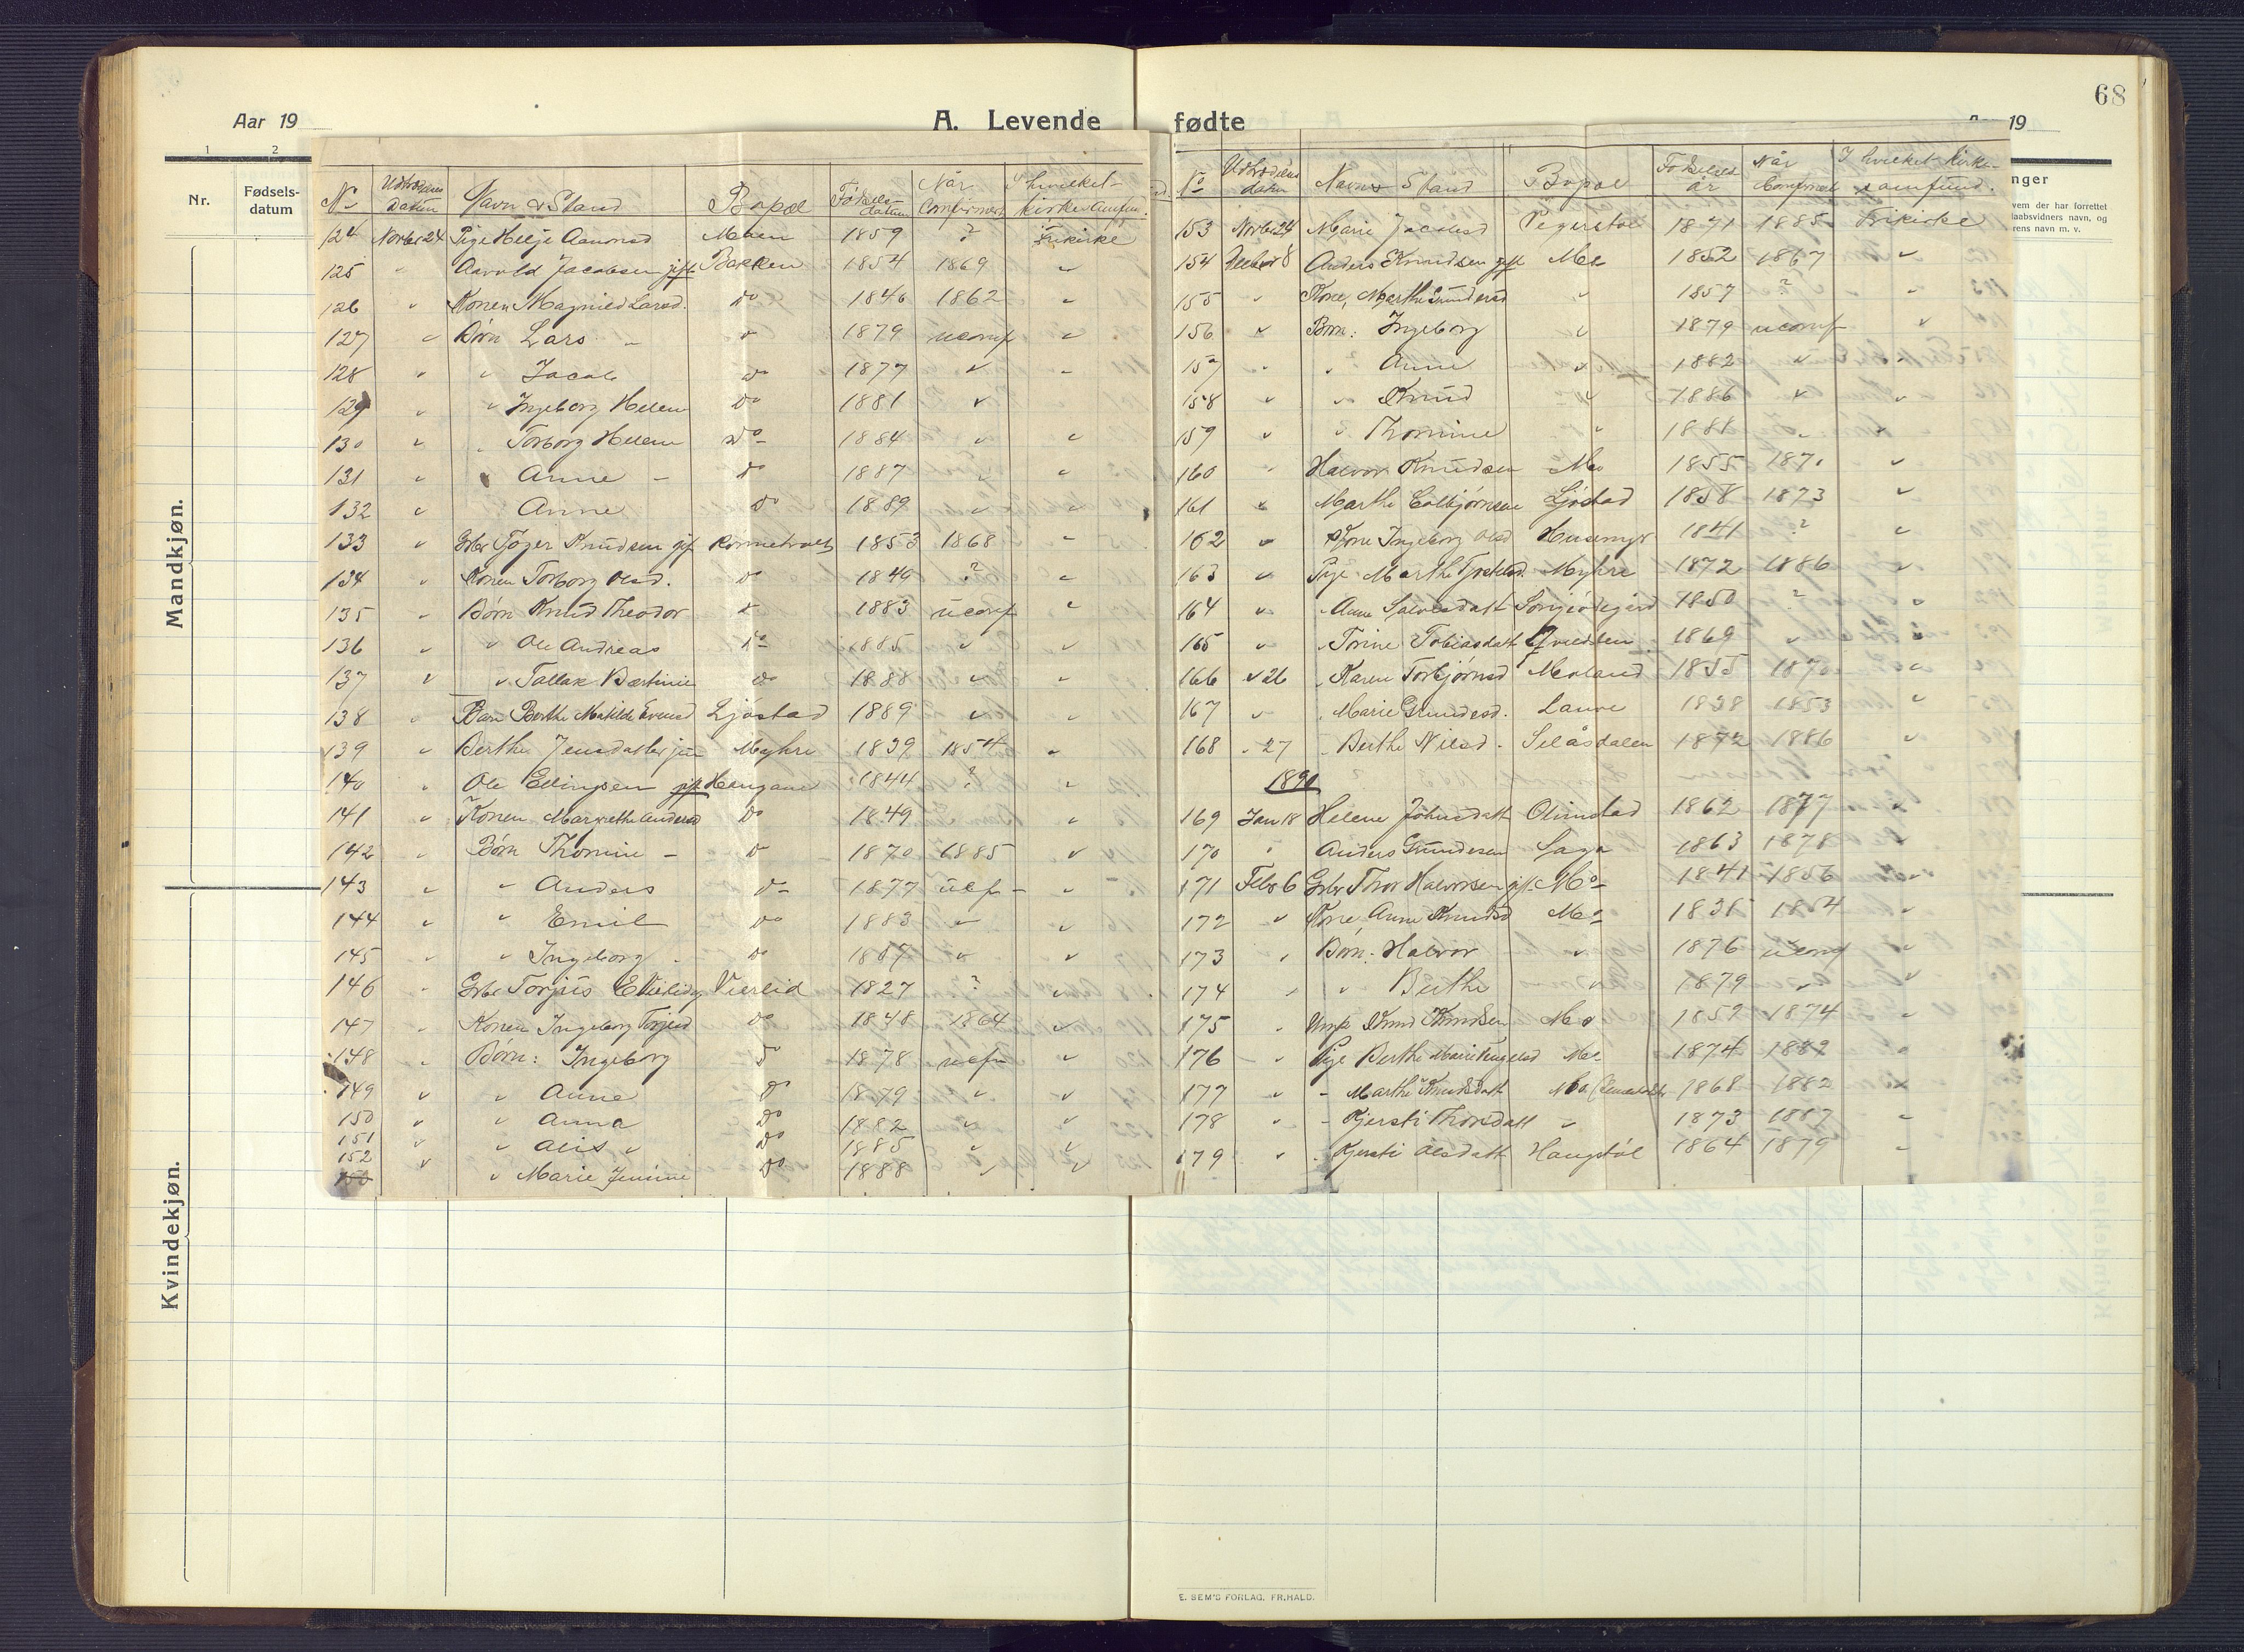 68
Aar 19
A. Levende
fødte
19
1
2
Nr.
Fødsels-
datum
nger
vem der har forrettet
laabsvidners navn, og
rens navn m. v.
Mandkjøn.
Kvindekjøn.
No Udtrædens Datum Navn & Stand Bopæl Fødsels datum Når Confirmert I hvilket kirkesamfun.
124 Novbr 24 Pige Helje Aanonsd Moen 1859 ? Frikirke
125 " Aavold Jacobsen gift Bakken 1854 1869 "
126 " Konen Magnild Larsd. Do 1846 1862 "
127 " Børn Lars " " 1879 uconf "
128 " " Jacob Do 1877 " "
129 " " Ingeborg Helene Do 1881 "
130 " " Torborg Helene Do 1884 " "
131 " " Anne - Do 1887 " "
132 " Anne Do 1889 " "
133 " Gbr Tøger Knudsen gift 1853 1868 "
134 " Konen Torborg Olsd. Do 1849 ? "
135 " Børn Knud Theodor Do 1883 uconf "
136 " " Ole Andreas Do 1885 " "
137 " " Tallak Bærtinie Do 1888 " "
138 " Barn Berthe Matilde Evensd Ljøstad 1889 " "
139 " Berthe Jensdatter Myhre 1839 1854 "
140 " Ole Ellingsen gift Haugane 1844 ? "
141 " Konen Margrethe Andersd Do 1849 "
142 " Børn Thomine - Do 1870 1885 "
143 " " Anders Do 1877 ucf - "
144 " " Emil Do 1883 " "
145 " " Ingeborg - Do 1887 " "
146 " Gbr Torjus Vierlid 1827 ? "
147 " Konen Ingeborg Torjusd Do 1848 1864 "
148 " Børn: Ingeborg Do 1878 ucfn "
149 " " Anne Do 1879 " "
150 " " Anna Do 1882 " "
151 " " Alis " Do 1885 " "
152 " " Marie Jensine Do 1888 " "
No Udtrædens datum Navn & Stand Bopæl Fødsels år Når Confirmert I hvilket Kirke-samfund.
153 Novbr 24 Marie Jacobsd 1871 1885 Frikirke
154 Decbr 8 Anders Knudsen gift Mo 1852 1867 "
155 " Kone, Marthe Gundersd " 1857 ? "
156 " Børn: Ingeborg " 1879 uconf "
157 " " Anne " 1882 " "
158 " " Knud " 1886 " "
159 " " Thomine " 1888 " "
160 " Halvor Knudsen Mo 1855 187. "
161 " Marthe Ljøstad 1858 1873 "
162 " Kone Ingeborg Olsd Husemyr 1841 ? "
163 " Pige Marthe Myhre 1872 1886 "
164 " " Anne Salvesdatt 1850 ? "
165 " " Torine Tobiasdatt 1869 " "
166 " 26 " Karen Torbjørnsd Moland 1855 1870 "
167 " " Marie Gundersd. Lauve 1838 1853 "
168 " 27 " Berthe Nilsd. Selåsdalen 1872 1886 "
1890
169 Jan 18 Helene Johnsdatt Olimstad 1862 1877 "
170 " Anders Gundersen Saga 1863 1878 "
171 Febr 6 Gbr Thor Halvorsen gift Mo 1841 1856 "
172 " Kone Anne Knudsd Mo 1838 1854 "
173 " Børn: Halvor " 1876 uconf "
174 " " Berthe " 1879 " "
175 " Ungk Knud Knudsen Mo 1859 1874 "
176 " Pige Berthe Marie Mo 1874 1889 "
177 " " Marthe Knudsdatt Mo 1868 1882 "
178 " " Kjersti Thorsdatt " 1873 1887 "
179 " " Kjersti Olsdatt Haugstøl 1864 1879 "
E. SEM'S FORLAG, FR.HALD.